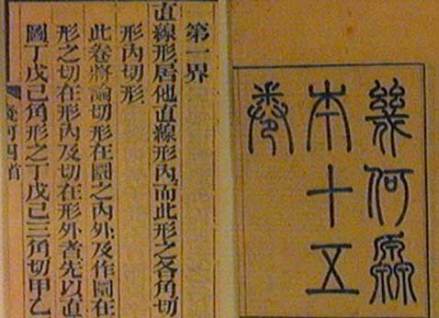 幾何原
本十五
卷
第一界
直線形居他直線形內而此形之各角切
形內切形
此卷將論切形在圜之內外及作圜在
形之切在形內及切在形外者先以直
圖丁戊己角形之丁戊己三角切甲乙
四首